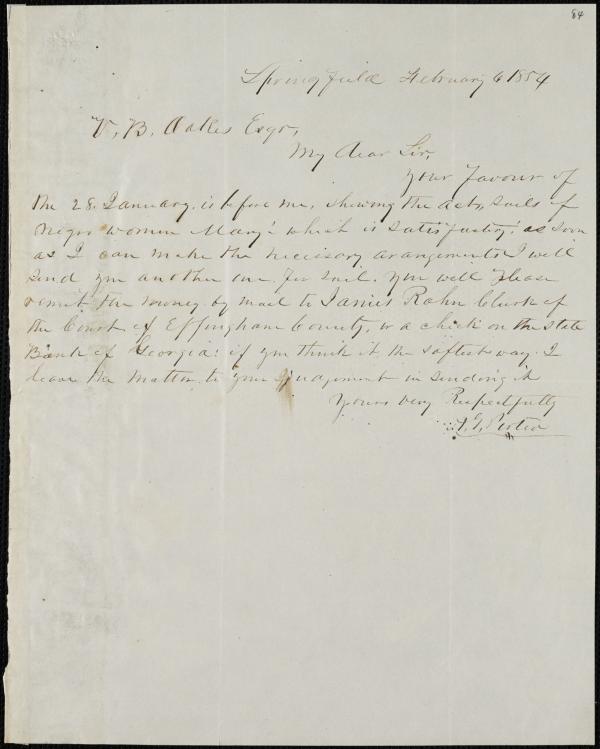 84
Springfield February 6 1854
Z. B. Oakes Esqr,
My dear Sir,
Your favour of
the 28. January. is before me, shewing the acts, sails of
negro women Mary: which is satisfactory: as soon
as I can make the necissory arangements I will
send you another one for sail. You will please
remit the money by mail to James Rahn Clerk of
the Court of Effingham County, or a check on the State
Bank of Georgia: if you think it the saftest way. I
leave the matter, to your judgement in sending it
Yours very Respectfully
Porter